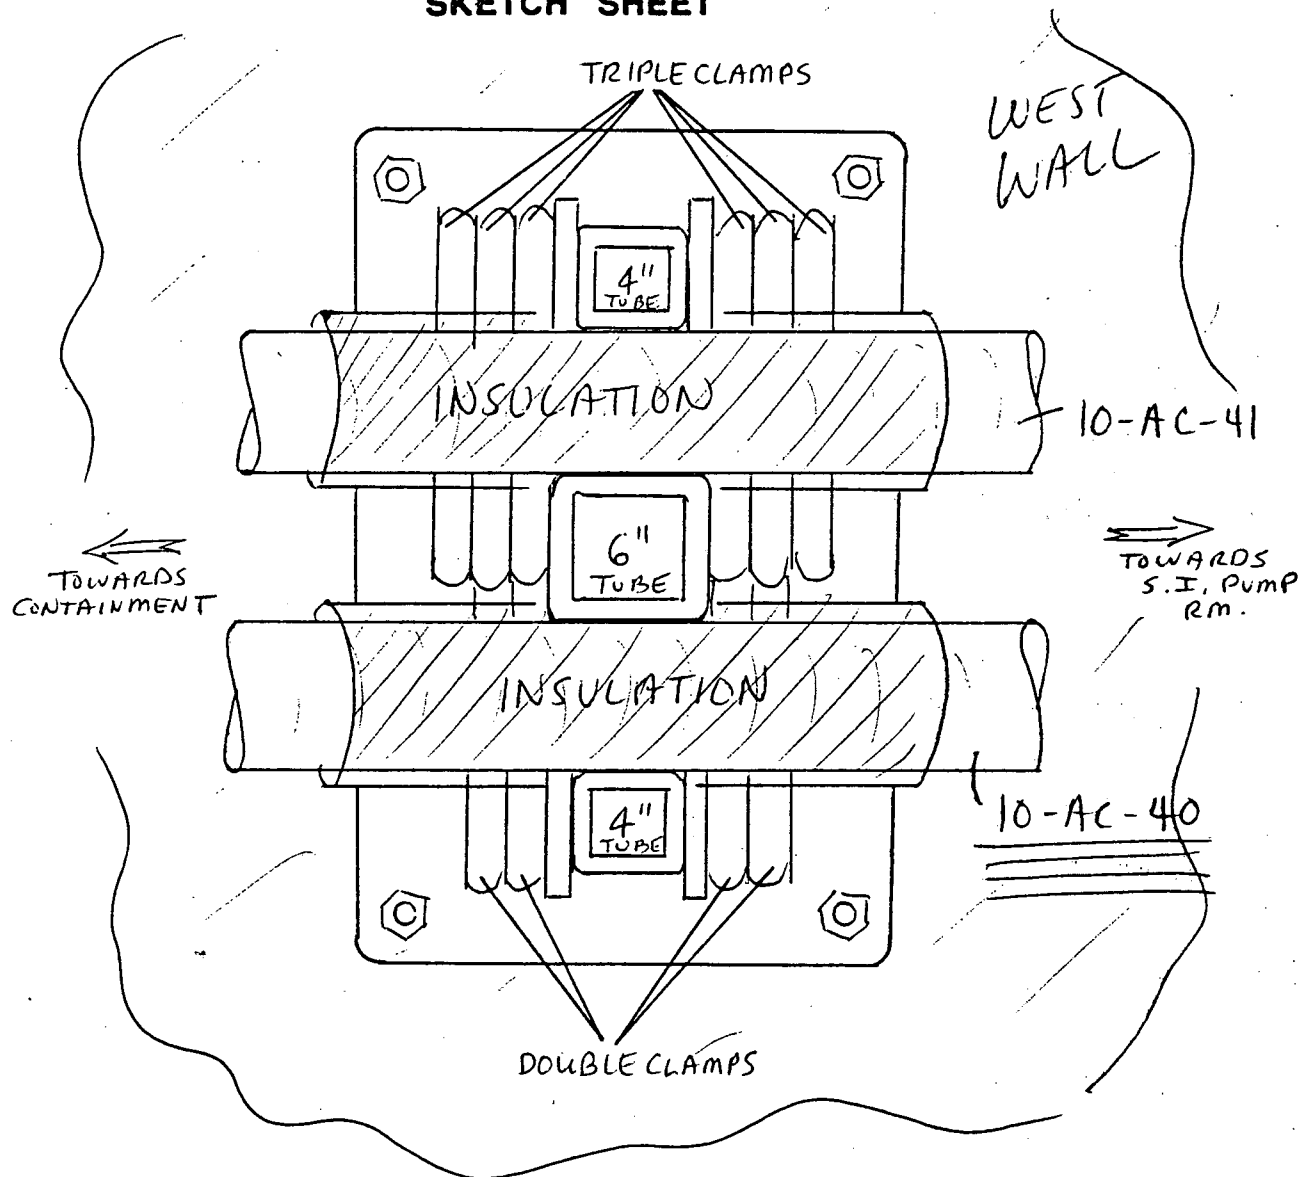 SKETCH SHEET
TRIPLE CLAMPS
WEST
WALL
4"
TUBE
INSULATION
10-AC-41
6"
TUBE
TOWARDS
CONTAINMENT
TOWARDS
S.I. PUMP
RM.
INSULATION
10-AC-40
4"
TUBE
DOUBLE CLAMPS